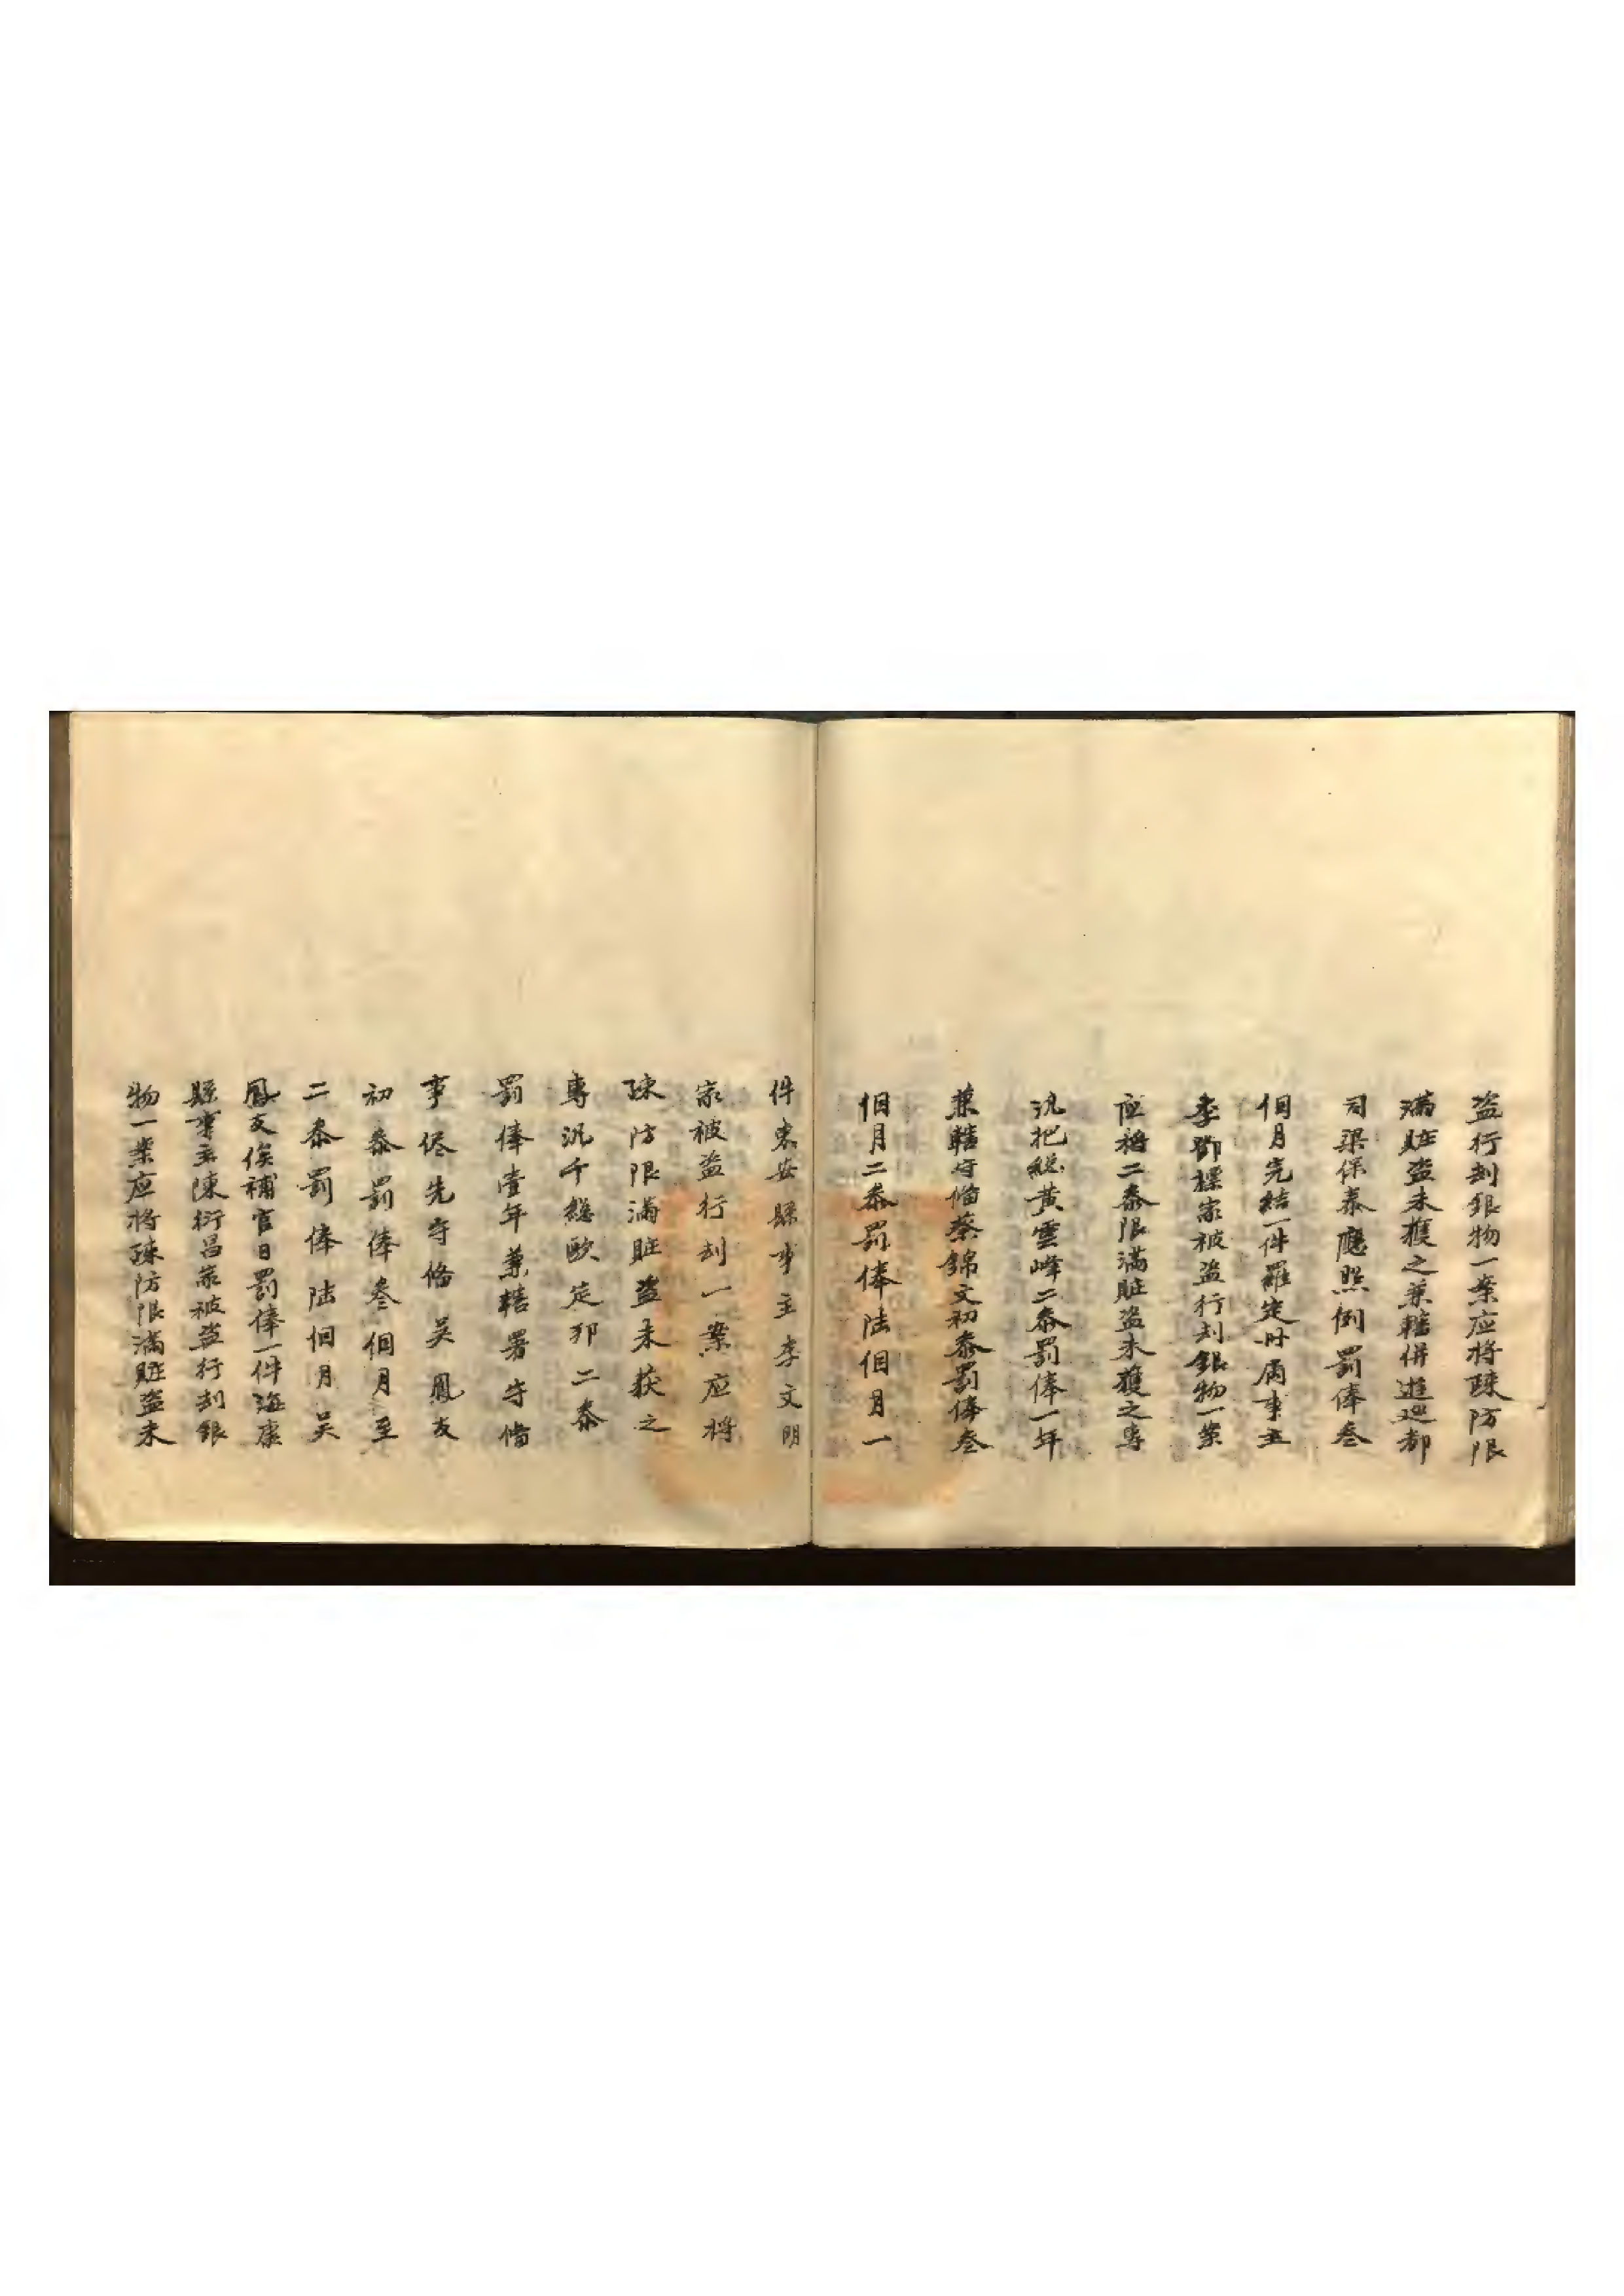 盗行刦銀物一案应将疎防限
满賍盗未獲之兼轄併巡廵都
司梁保泰應照例罰俸叁
個月完結一件羅定州属事主
李郁標家被盗行刦銀物一案
应将二叅限满賍盗未獲之專
汛把總黄雲峰二叅罰俸一年
兼轄守偹蔡錦文初叅罰俸叁
個月二叅罰俸陆個月一
件東安縣事主李文明
家被盗行刦一案应将
疎防限满賍盗未获之
專汛千總歐定邦二叅
罰俸壹年兼轄署守偹
事侭先守偹吴鳳友
初叅罰俸叁個月至
二叅罰俸陆個月吴
鳳友俟補官日罰俸一件海康
縣事主陳衍昌家被盗行刦銀
物一案应将疎防限满賍盗未